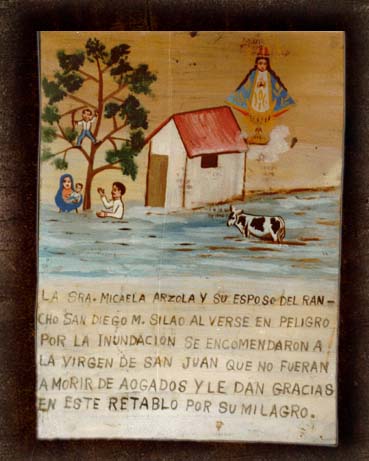 LA SRA. MICAELA ARZOLA Y SU ESPOSO DEL RAN-
CHO SAN DIEGO M. SILAO AL VERSE EN PELIGRO
POR LA INUNDACION SE ENCOMENDARON A
LA VIRGEN DE SAN JUAN QUE NO FUERAN
A MORIR DE AOGADOS Y LE DAN GRACIAS
EN ESTE RETABLO POR SU MILAGRO.